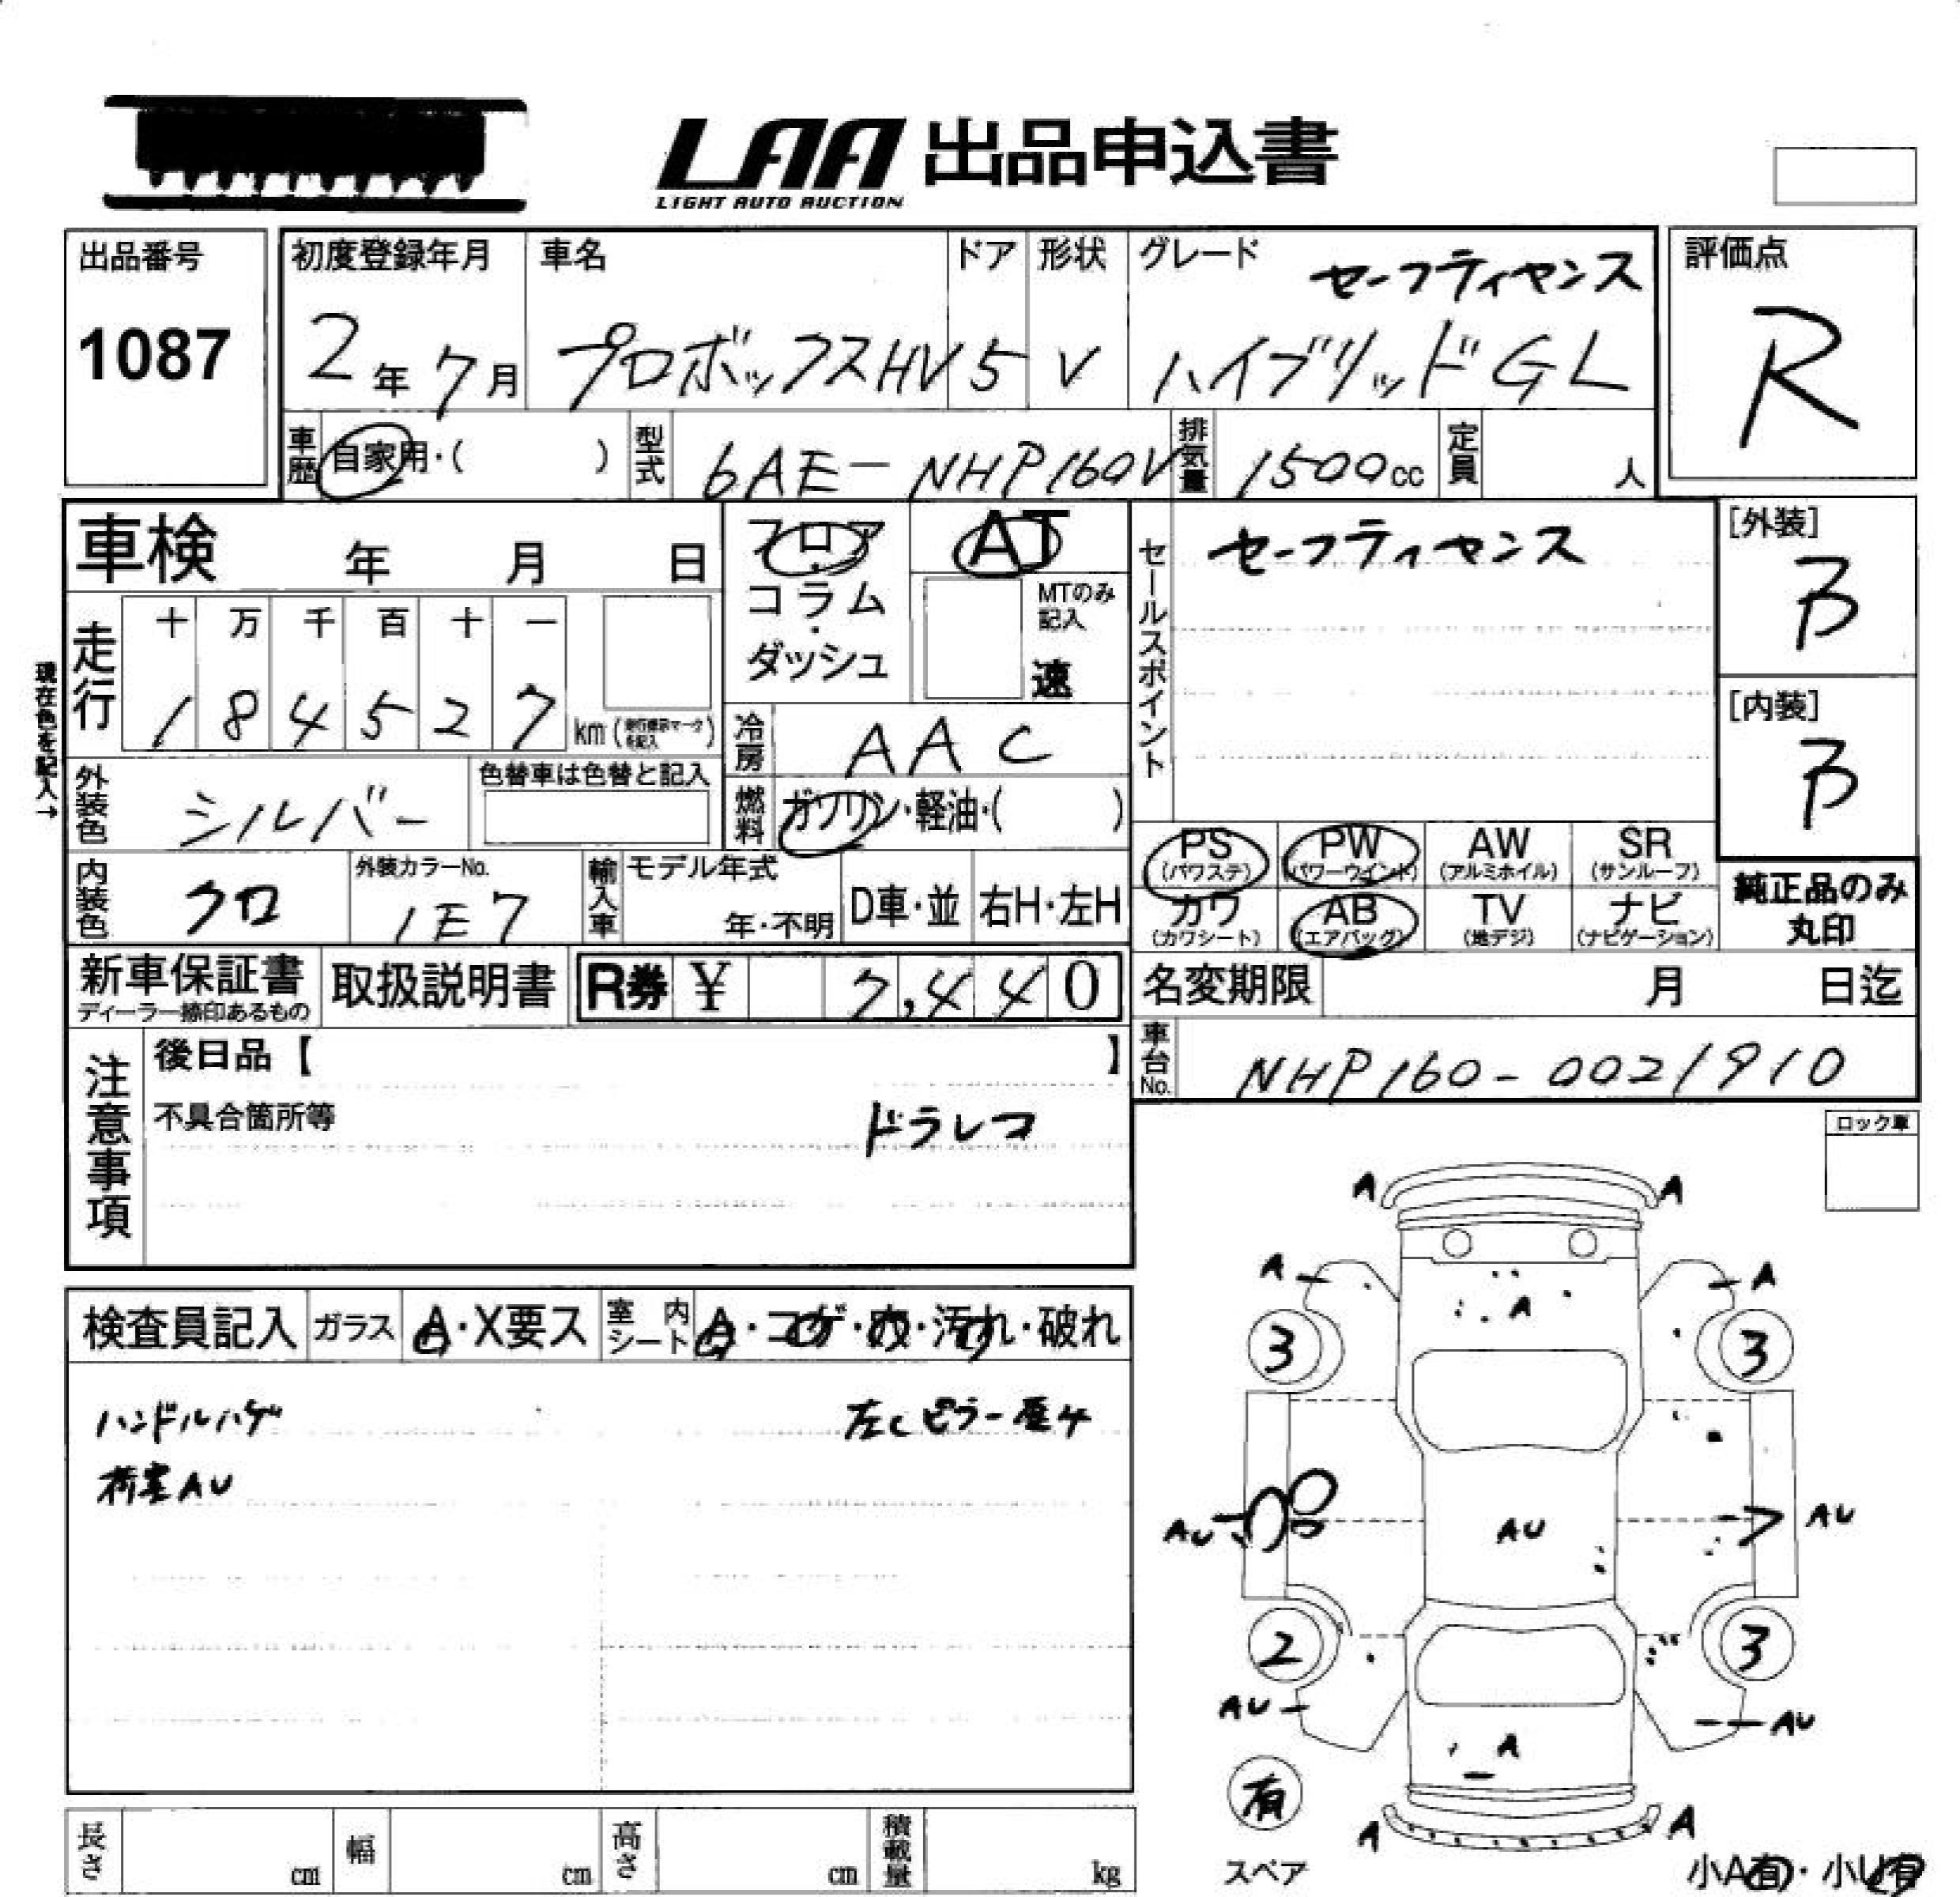 LAA 出品申込書
LIGHT AUTO AUCTION
出品番号
1087
初度登録年月
2年7月
車名
プロボックスHV
ドア
5
形状
V
グレード
セーフティセンス
ハイブリッドGL
評価点
R
車歴
自家用・( )
型式
6AE-NHP160V
排気量
1500cc
定員
人
車検 年 月 日
フロア・コラム・ダッシュ
AT
MTのみ記入
速
セールスポイント
セーフティセンス
[外装]
B
[内装]
B
現在色を記入→
走行
十 万 千 百 十 一
1 8 4 5 2 7 km
冷房
AAC
外装色
シルバー
色替車は色替と記入
燃料
ガソリン・軽油・( )
内装色
クロ
外装カラーNo.
1E7
輸入車
モデル年式
年・不明
D車・並
右H・左H
PS (パワステ)
PW (パワーウインド)
AW (アルミホイル)
SR (サンルーフ)
カワ (カワシート)
AB (エアバッグ)
TV (地デジ)
ナビ (ナビゲーション)
純正品のみ
丸印
新車保証書
ディーラー捺印あるもの
取扱説明書
R券 ¥ 7,440
名変期限 月 日迄
車台No.
NHP160-0021910
注意事項
後日品【 】
不具合箇所等
ドラレコ
ロック車
検査員記入
ガラス
A・X要ス
室内シート
A・コゲ・穴・汚れ・破れ
ハンドルハゲ
左Cピラー歴4
荷室AU
A A
A A
A
3 3
AU AU AU
2 3
AU AU
A
有
A A
スペア
小A有・小U有
長さ cm
幅 cm
高さ cm
積載量 kg